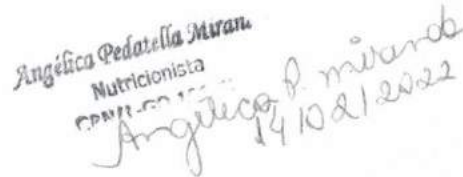 Angélica Pedatella Miran
Nutricionista
Angélica P. Miranda
14/02/2022